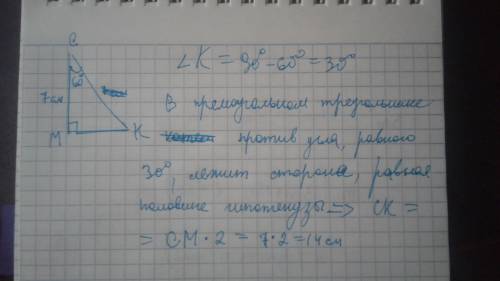 C
60°
7 см
M
K
∠K = 90° - 60° = 30°
В прямоугольном треугольнике
против угла, равного
30°, лежит сторона, равная
половине гипотенузы => CK =
= CM · 2 = 7 · 2 = 14 см